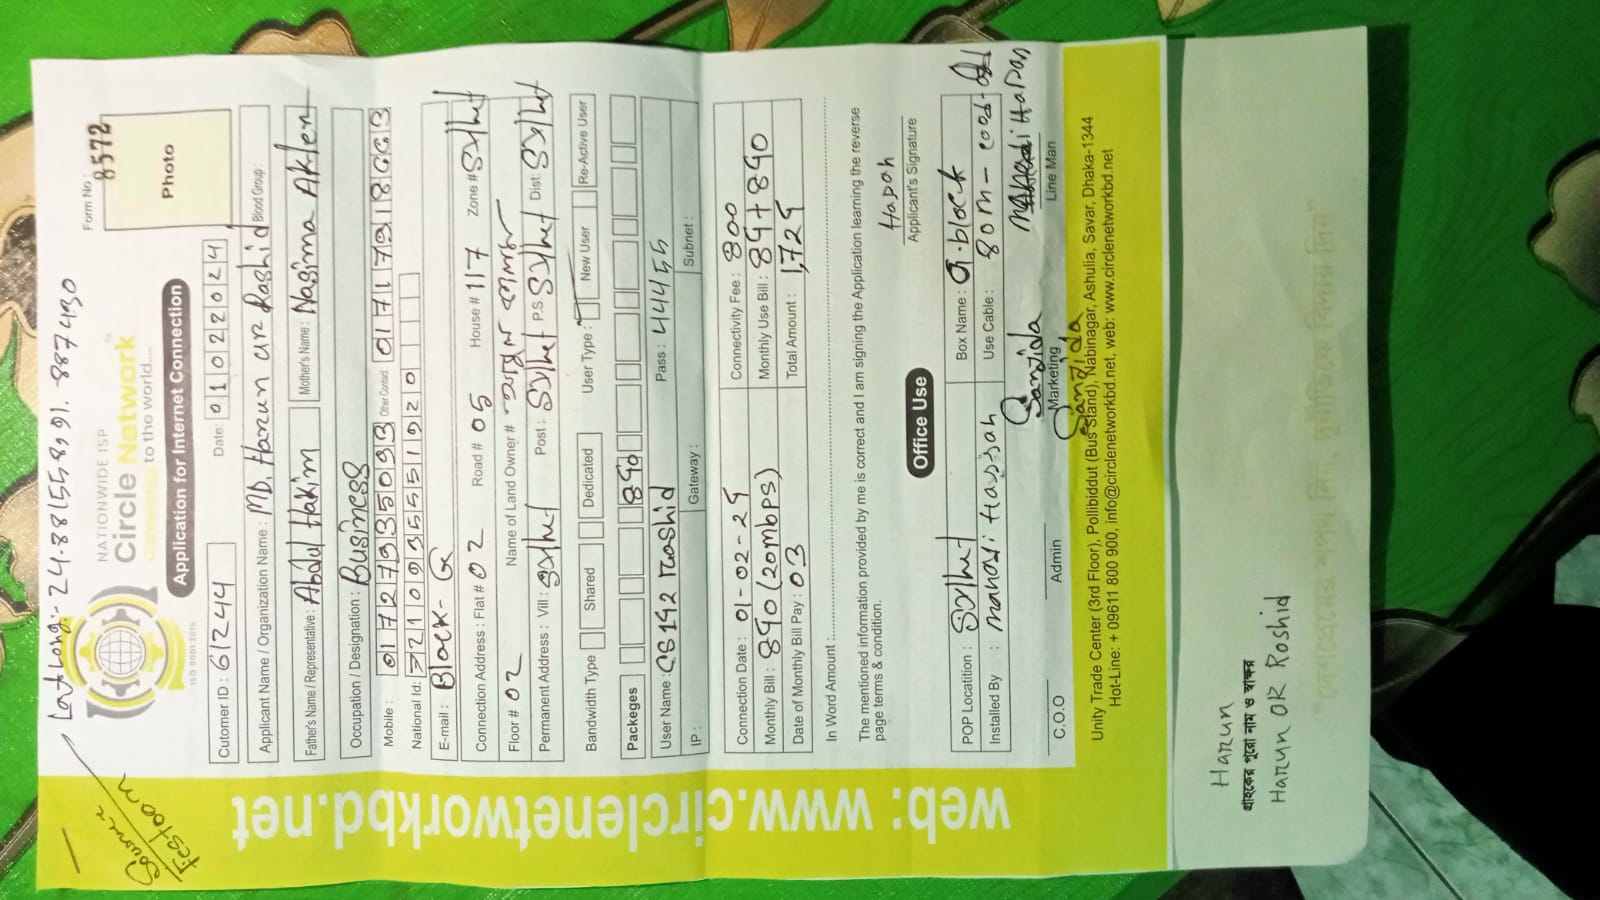 Lat Long:- 24.8815589,91.8874930
Source
NATIONWIDE ISP
Circle Network
to the world...
ISO 9001:2015
Form No :
8572
Application for Internet Connection
Photo
Cutomer ID : 61244
Date: 01022024
Applicant Name / Organization Name : MD, Harun ur Rashid Blood Group:
Father's Name / Representative : Abdul Hakim Mother's Name : Nasima Akter
Occupation / Designation : Business
Mobile : 01727935093 Other Contact
National Id:
E-mail : Block- G
Connection Address : Flat # 02 Road # 05 House # 117 Zone # Sylhet
Floor # 02 Name of Land Owner #
Permanent Address : Vill : Sylhet Post : Sylhet P.S. Sylhet Dist: Sylhet
Bandwidth Type Shared Dedicated User Type : New User Re-Active User
Packeges 890
User Name : Pass : 44455
IP : Gateway : Subnet :
Connection Date : 01-02-24 Connectivity Fee : 800
Monthly Bill : 890 (20mbps) Monthly Use Bill :
Date of Monthly Bill Pay : 03 Total Amount :
In Word Amount :
The mentioned information provided by me is correct and I am signing the Application learning the reverse
page terms & condition.
Applicant's Signature
Office Use
POP Locatition : Sylhet Box Name : G.block
Installed By : Use Cable :
Sanjida
C.O.O Admin Marketing Line Man
Sanjida
Unity Trade Center (3rd Floor), Pollibiddut (Bus Stand), Nabinagar, Ashulia, Savar, Dhaka-1344
Hot-Line: + 09611 800 900, info@circlenetworkbd.net, web: www.circlenetworkbd.net
web: www.circlenetworkbd.net
Harun
গ্রাহকের পুরো নাম ও স্বাক্ষর
Harun OR Roshid